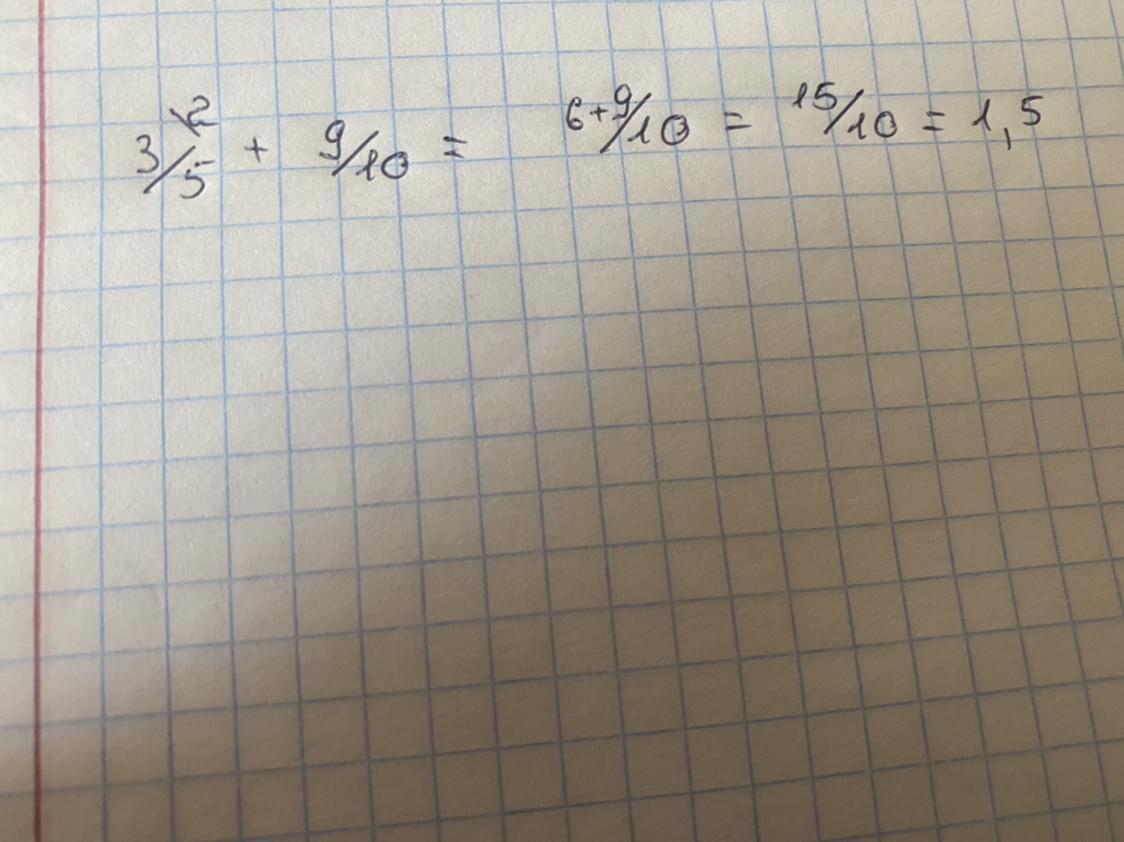 3/5 \2 + 9/10 = 6+9/10 = 15/10 = 1,5